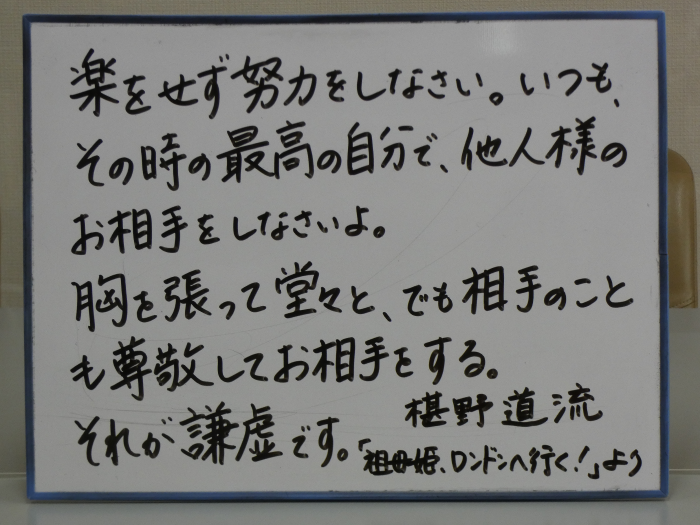 楽をせず努力をしなさい。いつも、
その時の最高の自分で、他人様の
お相手をしなさいよ。
胸を張って堂々と、でも相手のこと
も尊敬してお相手をする。
それが謙虚です。
椹野道流
「祖母姫、ロンドンへ行く!」より